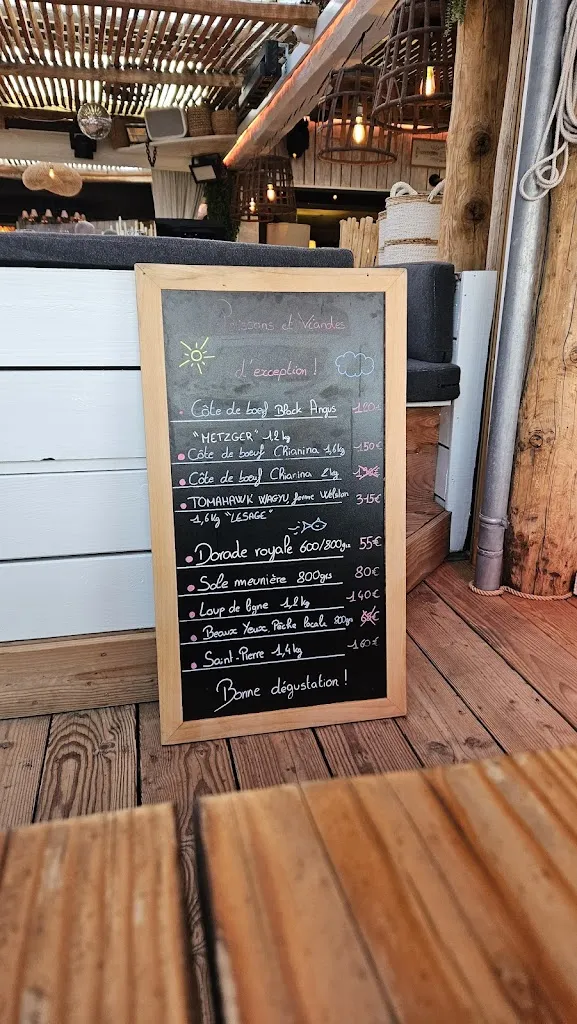 Poissons et Viandes
d'exception !
Côte de boeuf Black Angus 120€
"METZGER" 1.2 kg
Côte de boeuf Chianina 1,6kg 150€
Côte de boeuf Chianina 2kg
TOMAHAWK WAGYU, ferme 315€
1,6Kg "LESAGE"
Dorade royale 600/800grs 55€
Sole meunière 800grs 80€
Loup de ligne 1,2 kg 140€
Beaux Yeux, Pêche locale 800grs
Saint-Pierre 1,4kg 160€
Bonne dégustation !